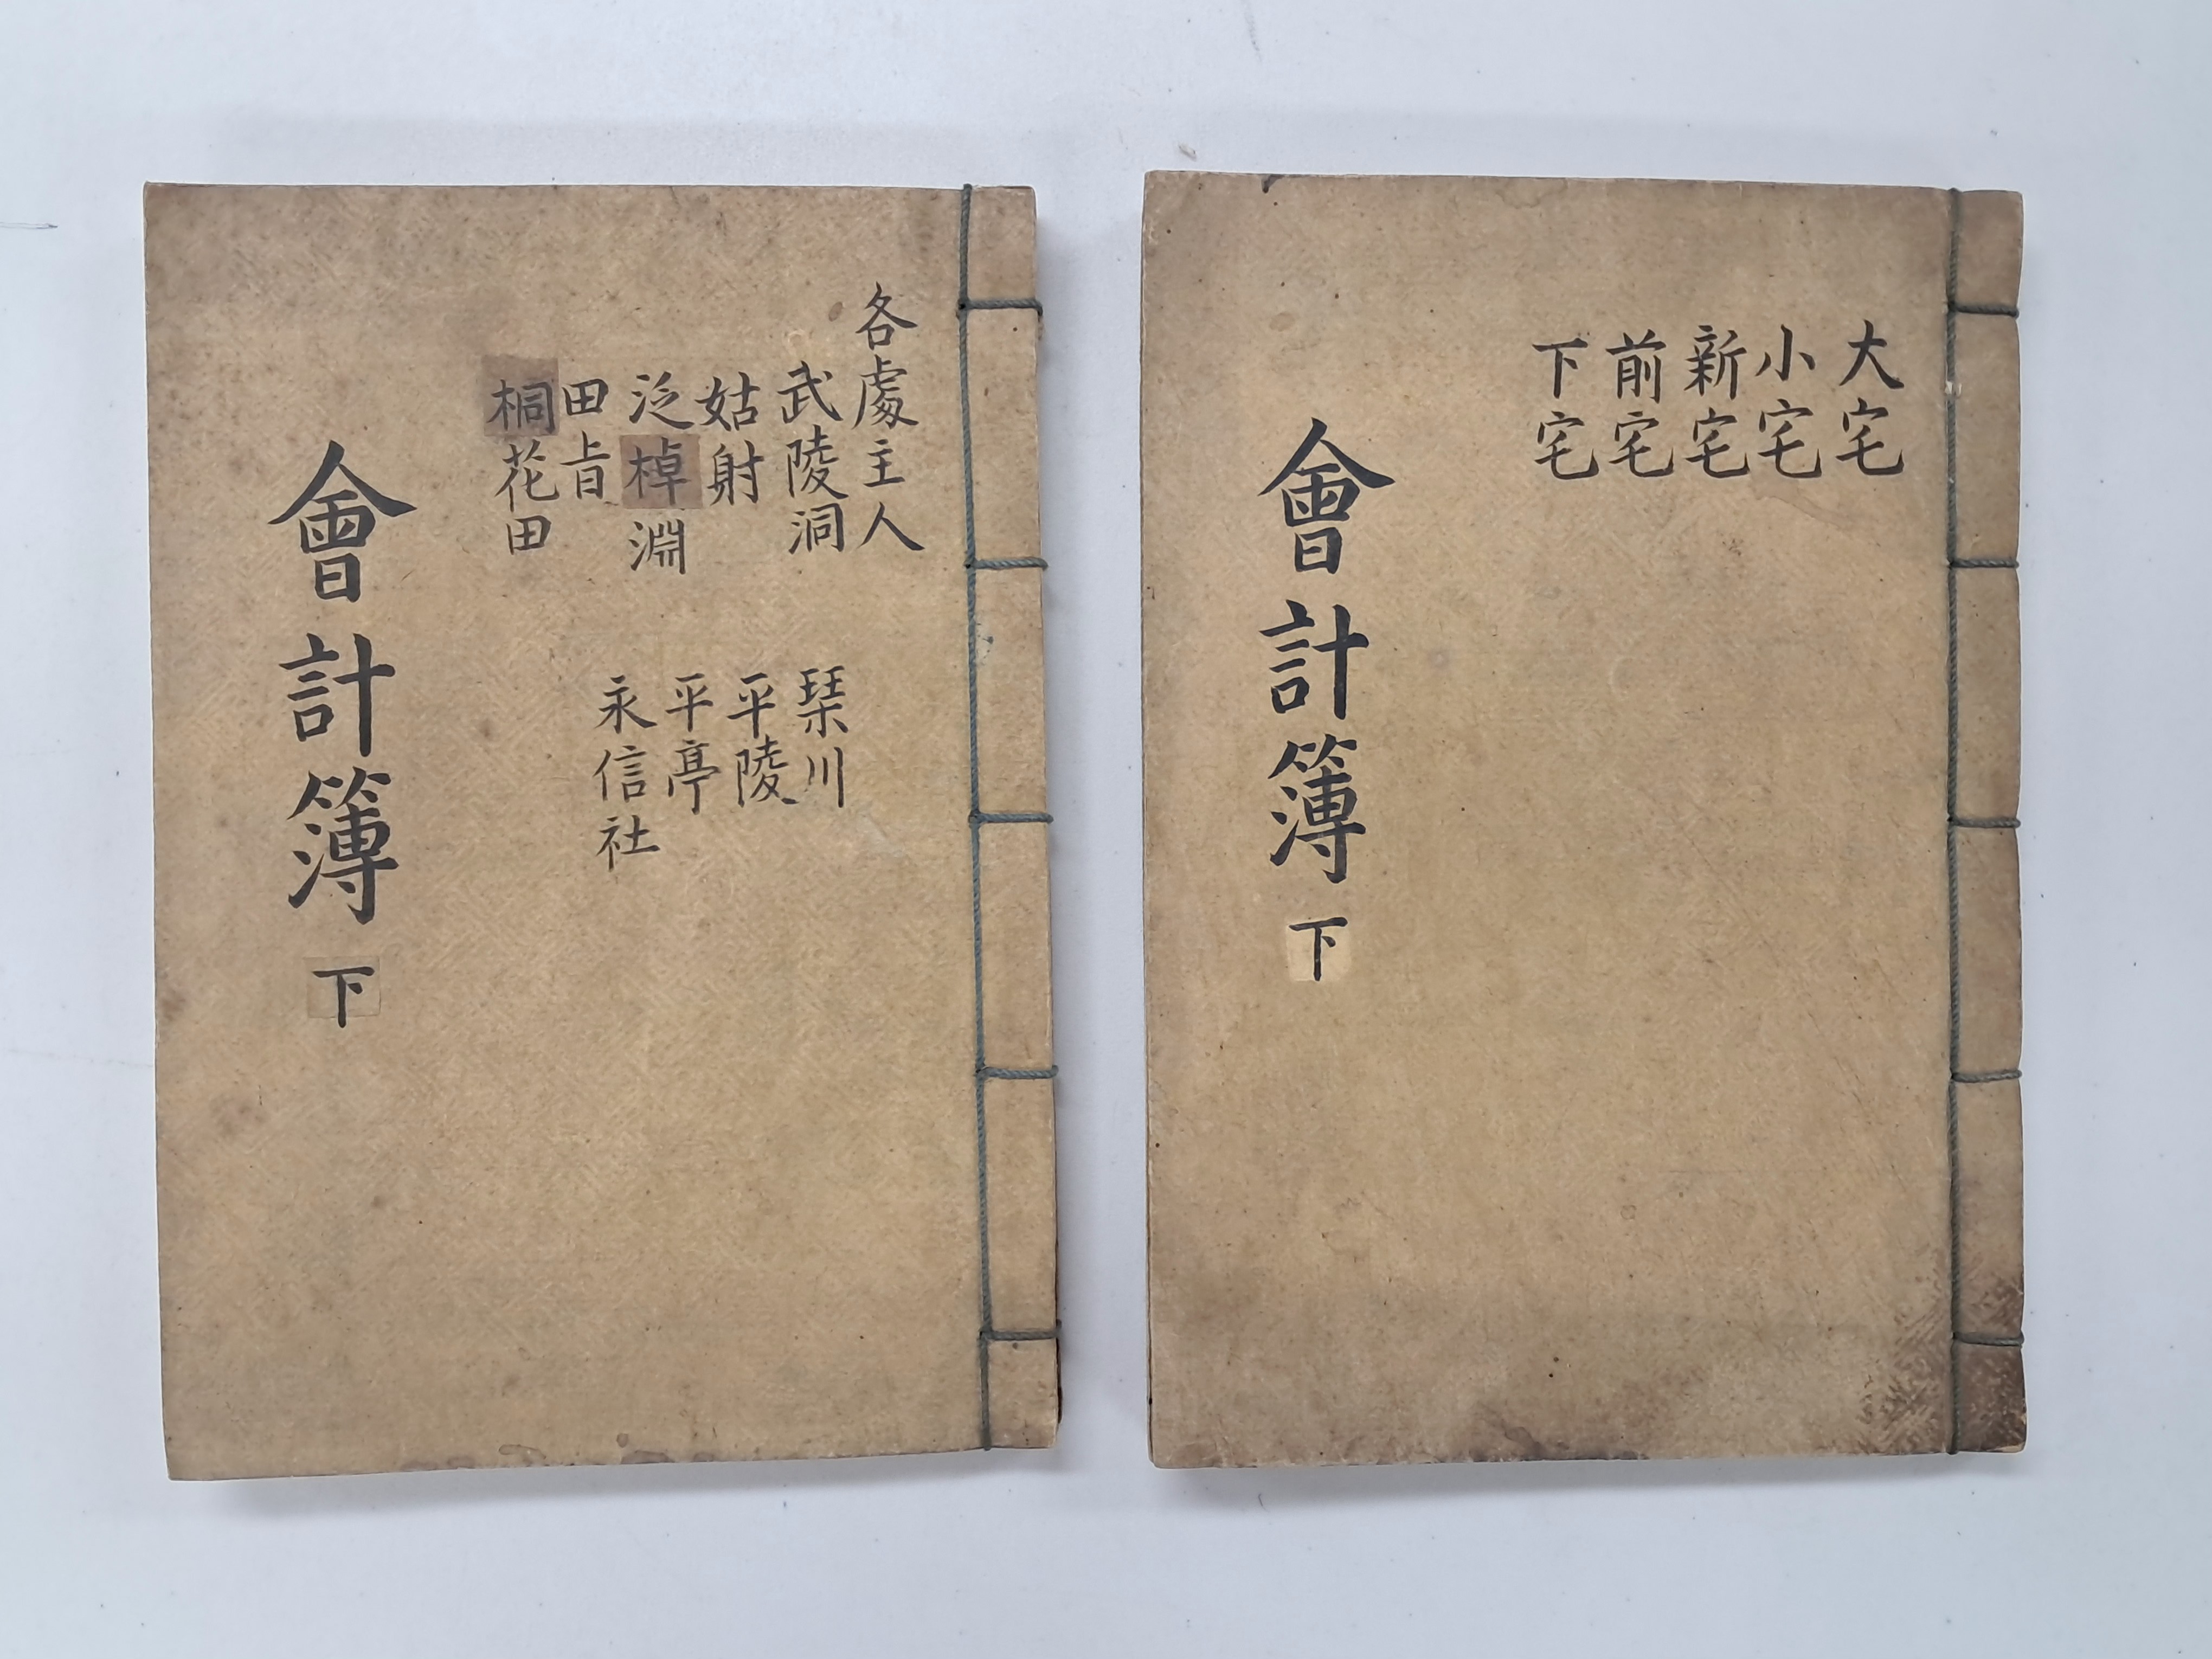 各處主人
武陵洞
姑射
泛棹淵
田㫖
桐花田
琹川
平陵
平亭
永信社
會計簿 下
大宅
小宅
新宅
前宅
下宅
會計簿 下